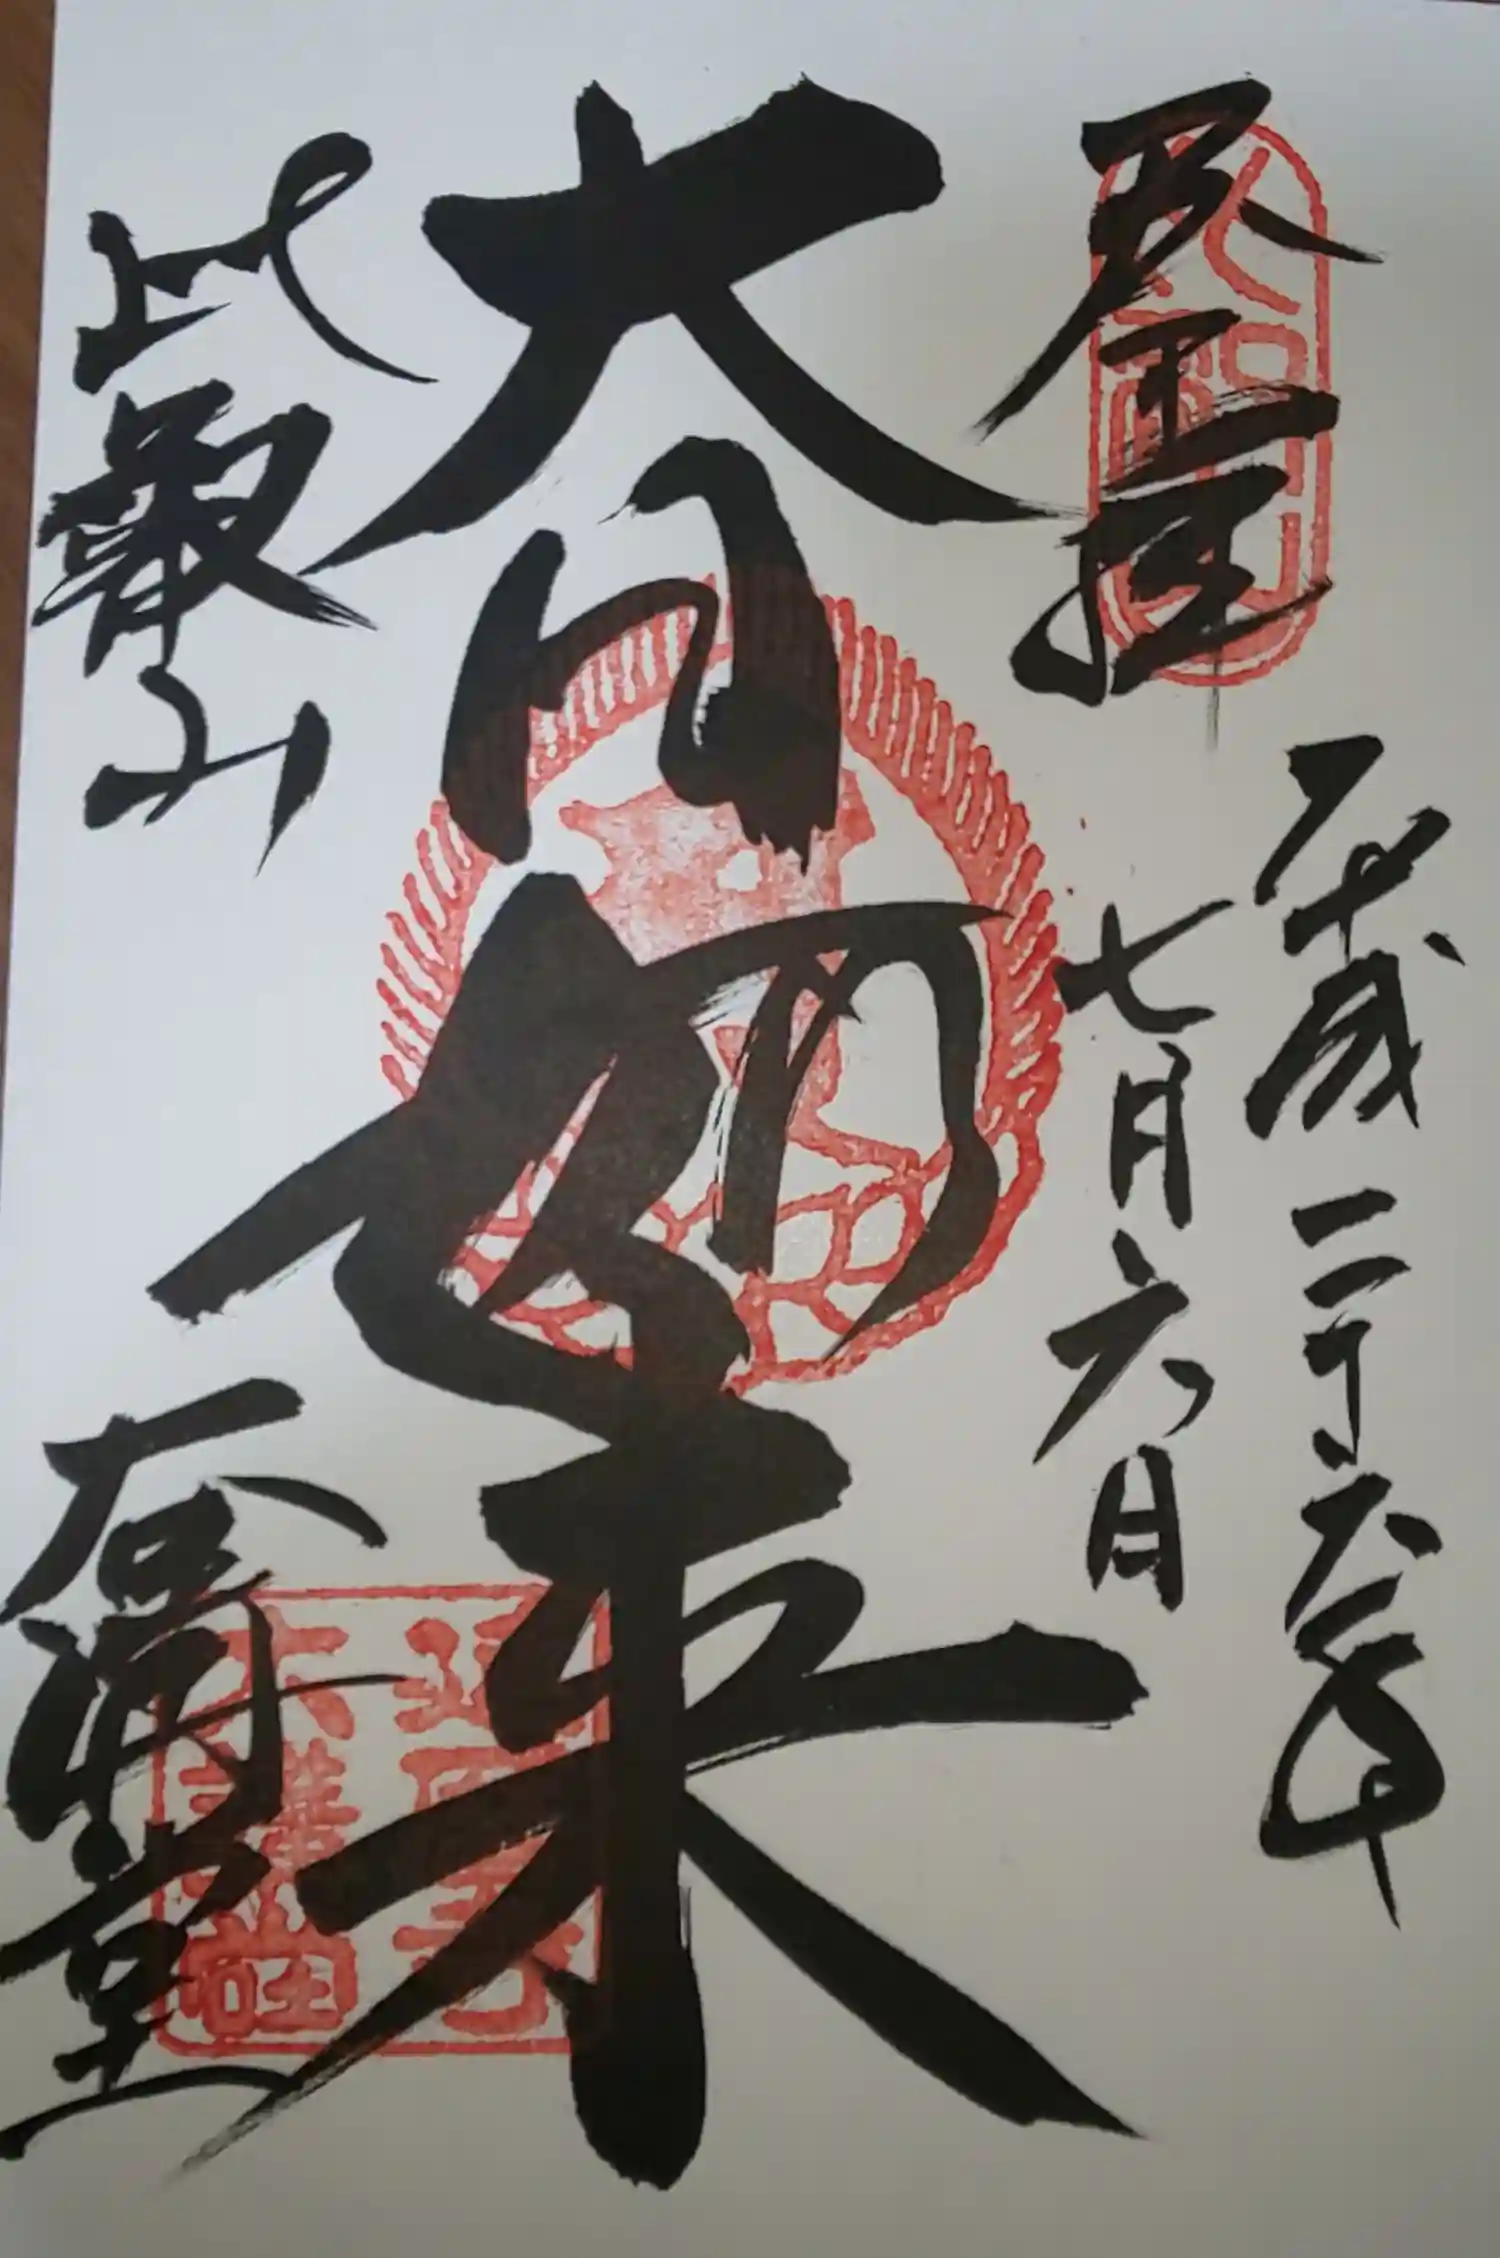 平成二十六年
七月六日
大日如来
比叡山
大講堂